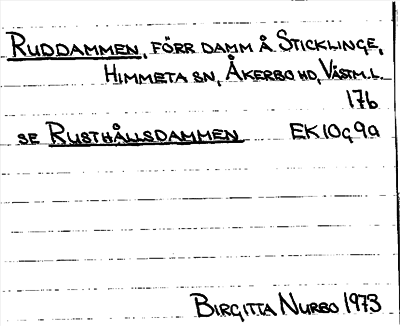 RUDDAMMEN, FÖRR DAMM Å STICKLINGE,
HIMMETA SN, ÅKERBO HD, VÄSTM.L.
17b
SE RUSTHÅLLSDAMMEN EK 10g9a
BIRGITTA NURBO 1973